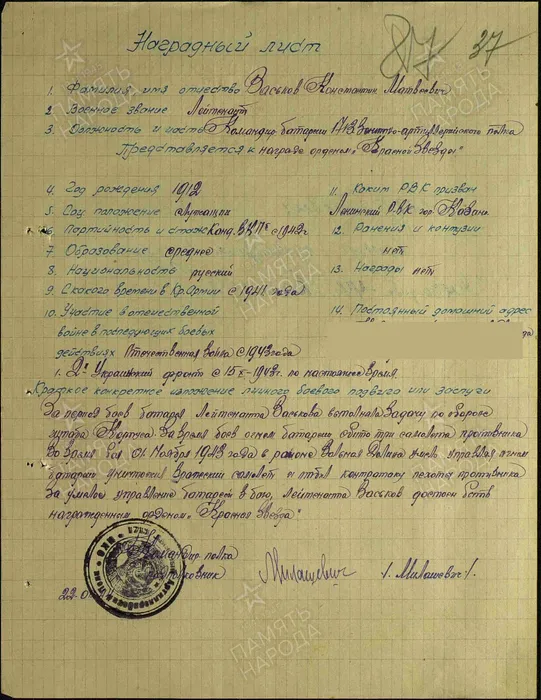 817 37
Наградный лист
1. Фамилия, имя отчество Васьков Константин Матвеевич
2. Военное звание Лейтенант
3. Должность и часть Командир батареи зенитно-артиллерийского полка
Представляется к награде орденом "Красной Звезды"
4. Год рождения 1912
5. Соц положение служащий
6. Партийность и стаж Канд. ВКП б с 1942 г
7. Образование среднее
8. Национальность русский
9. С какого времени в Кр. Армии с 1941 года
10. Участие в отечественной
войне в последующих боевых
действиях Отечественная война с 1943 года
11. Каким РВК призван
Ленинский РВК гор. Казань
12. Ранения и контузии
нет
13. Награды нет
14. Постоянный домашний адрес
1. 2й Украинский фронт с 1943г. по настоящее время
Краткое конкретное изложение личного боевого подвига или заслуги
За период боев батарея Лейтенанта Васькова выполняла задачу по обороне
хутора За время боев огнем батареи сбито три самолета противника
Во время боя 01 Ноября 1943 года в районе умело управляя огнем
батареи уничтожил вражеский самолет и отбил контратаку пехоты противника
За умелое управление батареей в бою, лейтенант Васьков достоен быть
награжденным орденом "Красная Звезда"
Командир полка
подполковник
/. Милашевич /.
22.0
ПАМЯТЬ
НАРОДА